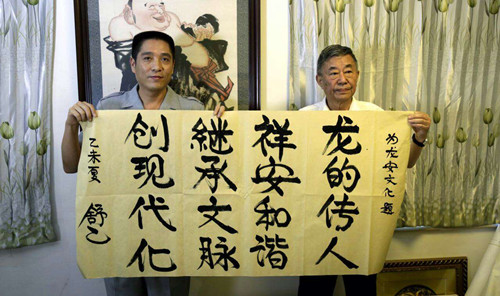 为龙安文化题
龙的传人
祥安和谐
继承文脉
创现代化
乙未夏 舒乙